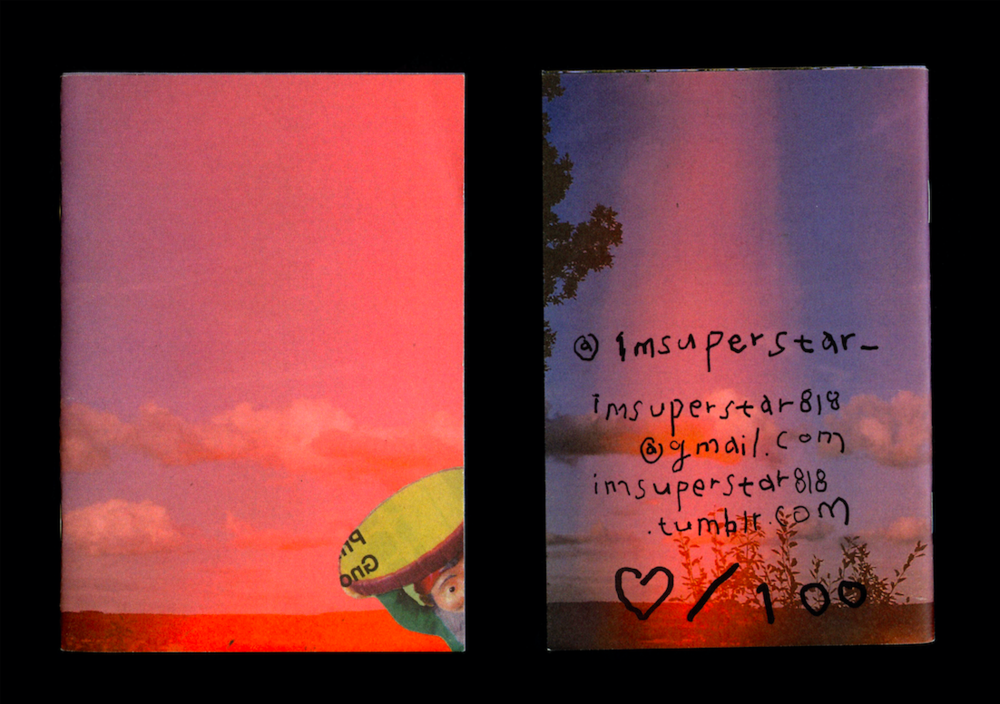 Gno
@ imsuperstar_
imsuperstar818
@gmail.com
imsuperstar818
.tumblr.com
♡/100